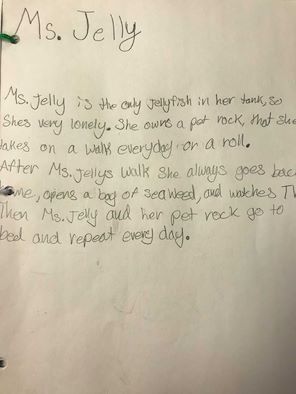 Ms. Jelly
Ms. Jelly is the only Jellyfish in her tank, so
Shes very lonely. She owns a pet rock, that she
takes on a walk everyday or a roll.
After Ms. Jellys walk She always goes back
home, opens a bag of seaweed, and watches TV
Then Ms. Jelly and her pet rock go to
bed and repeat every day.